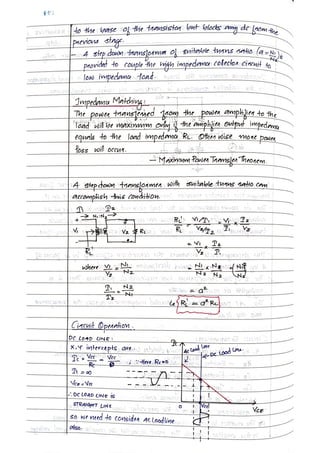 to the base of the transistor but blocks any dc from the
previous stage.
- A step down transformer of suitable turns ratio (a = N1/N2) is
provided to couple the high impedance collector circuit to
low impedance load.
Impedance Matching:
The power transferred from the power amplifier to the
load will be maximum only if the amplifier output impedance
equals to the load impedance RL. Otherwise more power
loss will occur.
- Maximum Power Transfer Theorem
A step down transformer with suitable turns ratio can
accomplish this condition.
I1 I2
N1:N2
V1 V2 RL
RL'
RL'/RL = V1/I1 / V2/I2 = V1/I1 × I2/V2
= V1/V2 · I2/I1
where V1/V2 = N1/N2
= N1/N2 × N1/N2
I1/I2 = N2/N1
= a²
RL' = a² RL
Circuit Operation.
DC LOAD LINE:
X,Y intercepts are
IC = VCC/RC = VCC/0 ; Here RC=0
IC = ∞
VCE = VCC
∴ DC LOAD LINE is
STRAIGHT LINE
so we need to consider AC loadline
also.
IC
AC Load line
DC Load line
0 VCC VCE